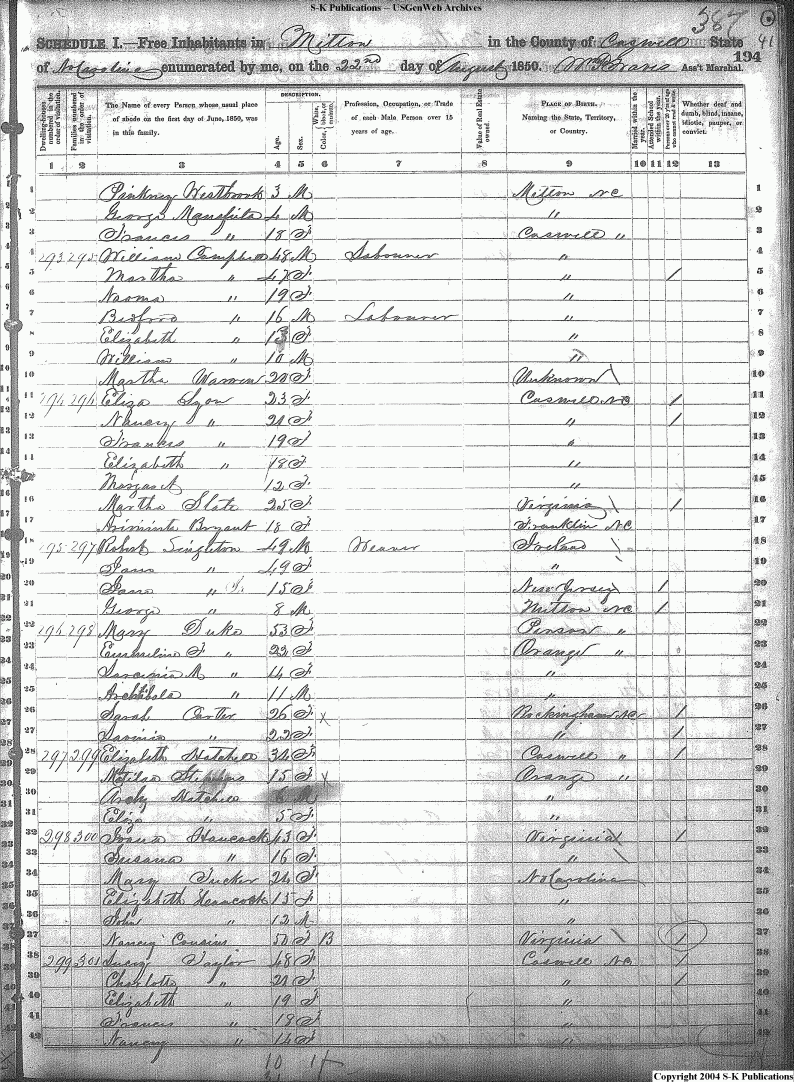 S-K Publications – USGenWeb Archives
387
41
SCHEDULE I.—Free Inhabitants in Milton in the County of Caswell State
of No Carolina enumerated by me, on the 22nd day of August 1850. Ass't Marshal. 194
Dwelling-houses numbered in the order of visitation. Families numbered in the order of visitation. The Name of every Person whose usual place of abode on the first day of June, 1850, was in this family. DESCRIPTION. Age. Sex. Color, White, black, or mulatto. Profession, Occupation, or Trade of each Male Person over 15 years of age. Value of Real Estate owned. PLACE OF BIRTH. Naming the State, Territory, or Country. Married within the year. Attended School within the year. Persons over 20 y'rs of age who cannot read & write. Whether deaf and dumb, blind, insane, idiotic, pauper, or convict.
1 2 3 4 5 6 7 8 9 10 11 12 13
1 Pinkney Westbrook 3 M Milton NC 1
2 George Mansfield 4 M " 2
3 Frances " 18 F Caswell " 3
4 293 295 William Campbell 48 M Labourer " 4
5 Martha " 47 F " / 5
6 Naoma " 19 F " 6
7 " 16 M Labourer " 7
8 Elizabeth " 13 F " 8
9 William " 10 M " 9
10 Martha Warren 20 F Unknown \ 10
11 294 296 Eliza Lyon 23 F Caswell NC / 11
12 Nancy " 21 F " / 12
13 Frances " 19 F " 13
14 Elizabeth " 18 F " 14
15 Margaret 12 F " 15
16 Martha Slate 25 F Virginia \ / 16
17 Bryant 18 F Franklin NC 17
18 295 297 Robert Singleton 49 M Weaver Ireland 18
19 Jane " 49 F " 19
20 Jane " 15 F New Jersey / 20
21 George " 8 M Milton NC / 21
22 296 298 Mary Duke 53 F Person " 22
23 Emmeline F " 22 F Orange " 23
24 M " 14 F " 24
25 Archibald " 11 M " 25
26 Sarah Carter 26 F X Rockingham NC / 26
27 " 22 F " / 27
28 297 299 Elizabeth Hatchell 34 F Caswell " / 28
29 Matilda Stephens 15 F X Orange " 29
30 Archy Hatchell 6 M " 30
31 Eliza " 5 F " 31
32 298 300 Hancock 43 F Virginia \ / 32
33 Susana " 16 F " \ 33
34 Mary Tucker 24 F No Carolina 34
35 Elizabeth Hancock 15 F " 35
36 John " 12 M " 36
37 Nancy Cousins 50 F B Virginia \ / 37
38 299 301 Lucy Taylor 48 F Caswell NC / 38
39 Charlotte " 21 F " / 39
40 Elizabeth " 19 F " 40
41 Frances " 18 F " 41
42 Nancy " 14 F " 42
10
Copyright 2004 S-K Publications